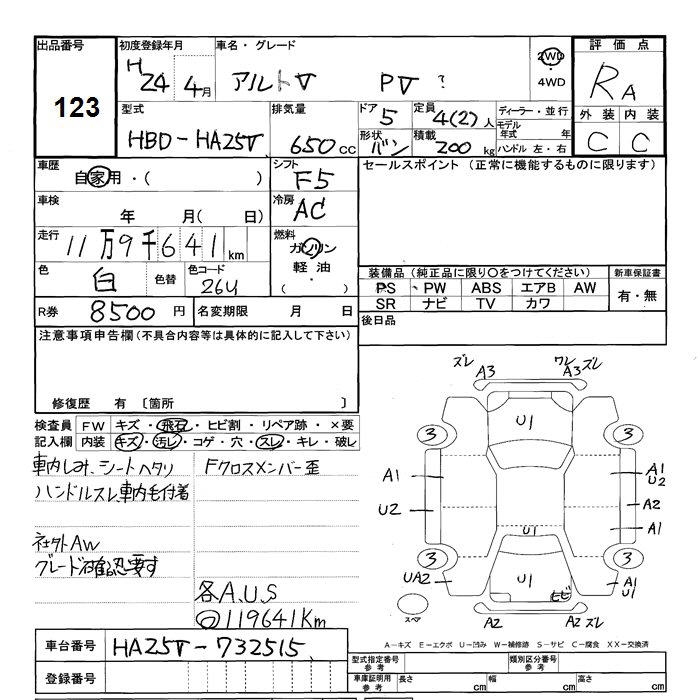 出品番号
123
初度登録年月
H
24 4月
車名・グレード
アルトV PV ?
2WD
・
4WD
評価点
RA
外装 内装
C C
型式
HBD-HA25V
排気量
650cc
ドア
5
定員
4(2)人
形状
バン
積載
200kg
ディーラー・並行
モデル年式 年
ハンドル 左・右
車歴
自家用・( )
シフト
F5
セールスポイント (正常に機能するものに限ります)
車検
年 月(日)
冷房
AC
走行
11万9千641km
燃料
ガソリン
軽油
・
( )
色
白
色替
色コード
26U
装備品 (純正品に限り〇をつけてください)
新車保証書
PS PW ABS エアB AW
SR ナビ TV カワ
有・無
R券 8500円
名変期限 月 日
後日品
注意事項申告欄(不具合内容等は具体的に記入して下さい)
修復歴 有 〔箇所 〕
検査員記入欄
FW キズ・飛石・ヒビ割・リペア跡・×要
内装 キズ・汚レ・コゲ・穴・スレ・キレ・破レ
車内しみ、シートヘタリ
ハンドルスレ車内毛付着
社外AW
グレード確認要す
Fクロスメンバー歪
各A.U.S
◎119641Km
ズレ A3
ワレ A3 ズレ
U1
3 3
A1
U2
A1
U2
A2
A1
U1
3 3
UA2
U1
ヒビ
A1
U1
スペア
A2
A2 ズレ
A-キズ E-エクボ U-凹み W-補修跡 S-サビ C-腐食 XX-交換済
車台番号
HA25V-732515
登録番号
型式指定番号参考
類別区分番号参考
車庫証明用参考
長さ cm 幅 cm 高さ cm